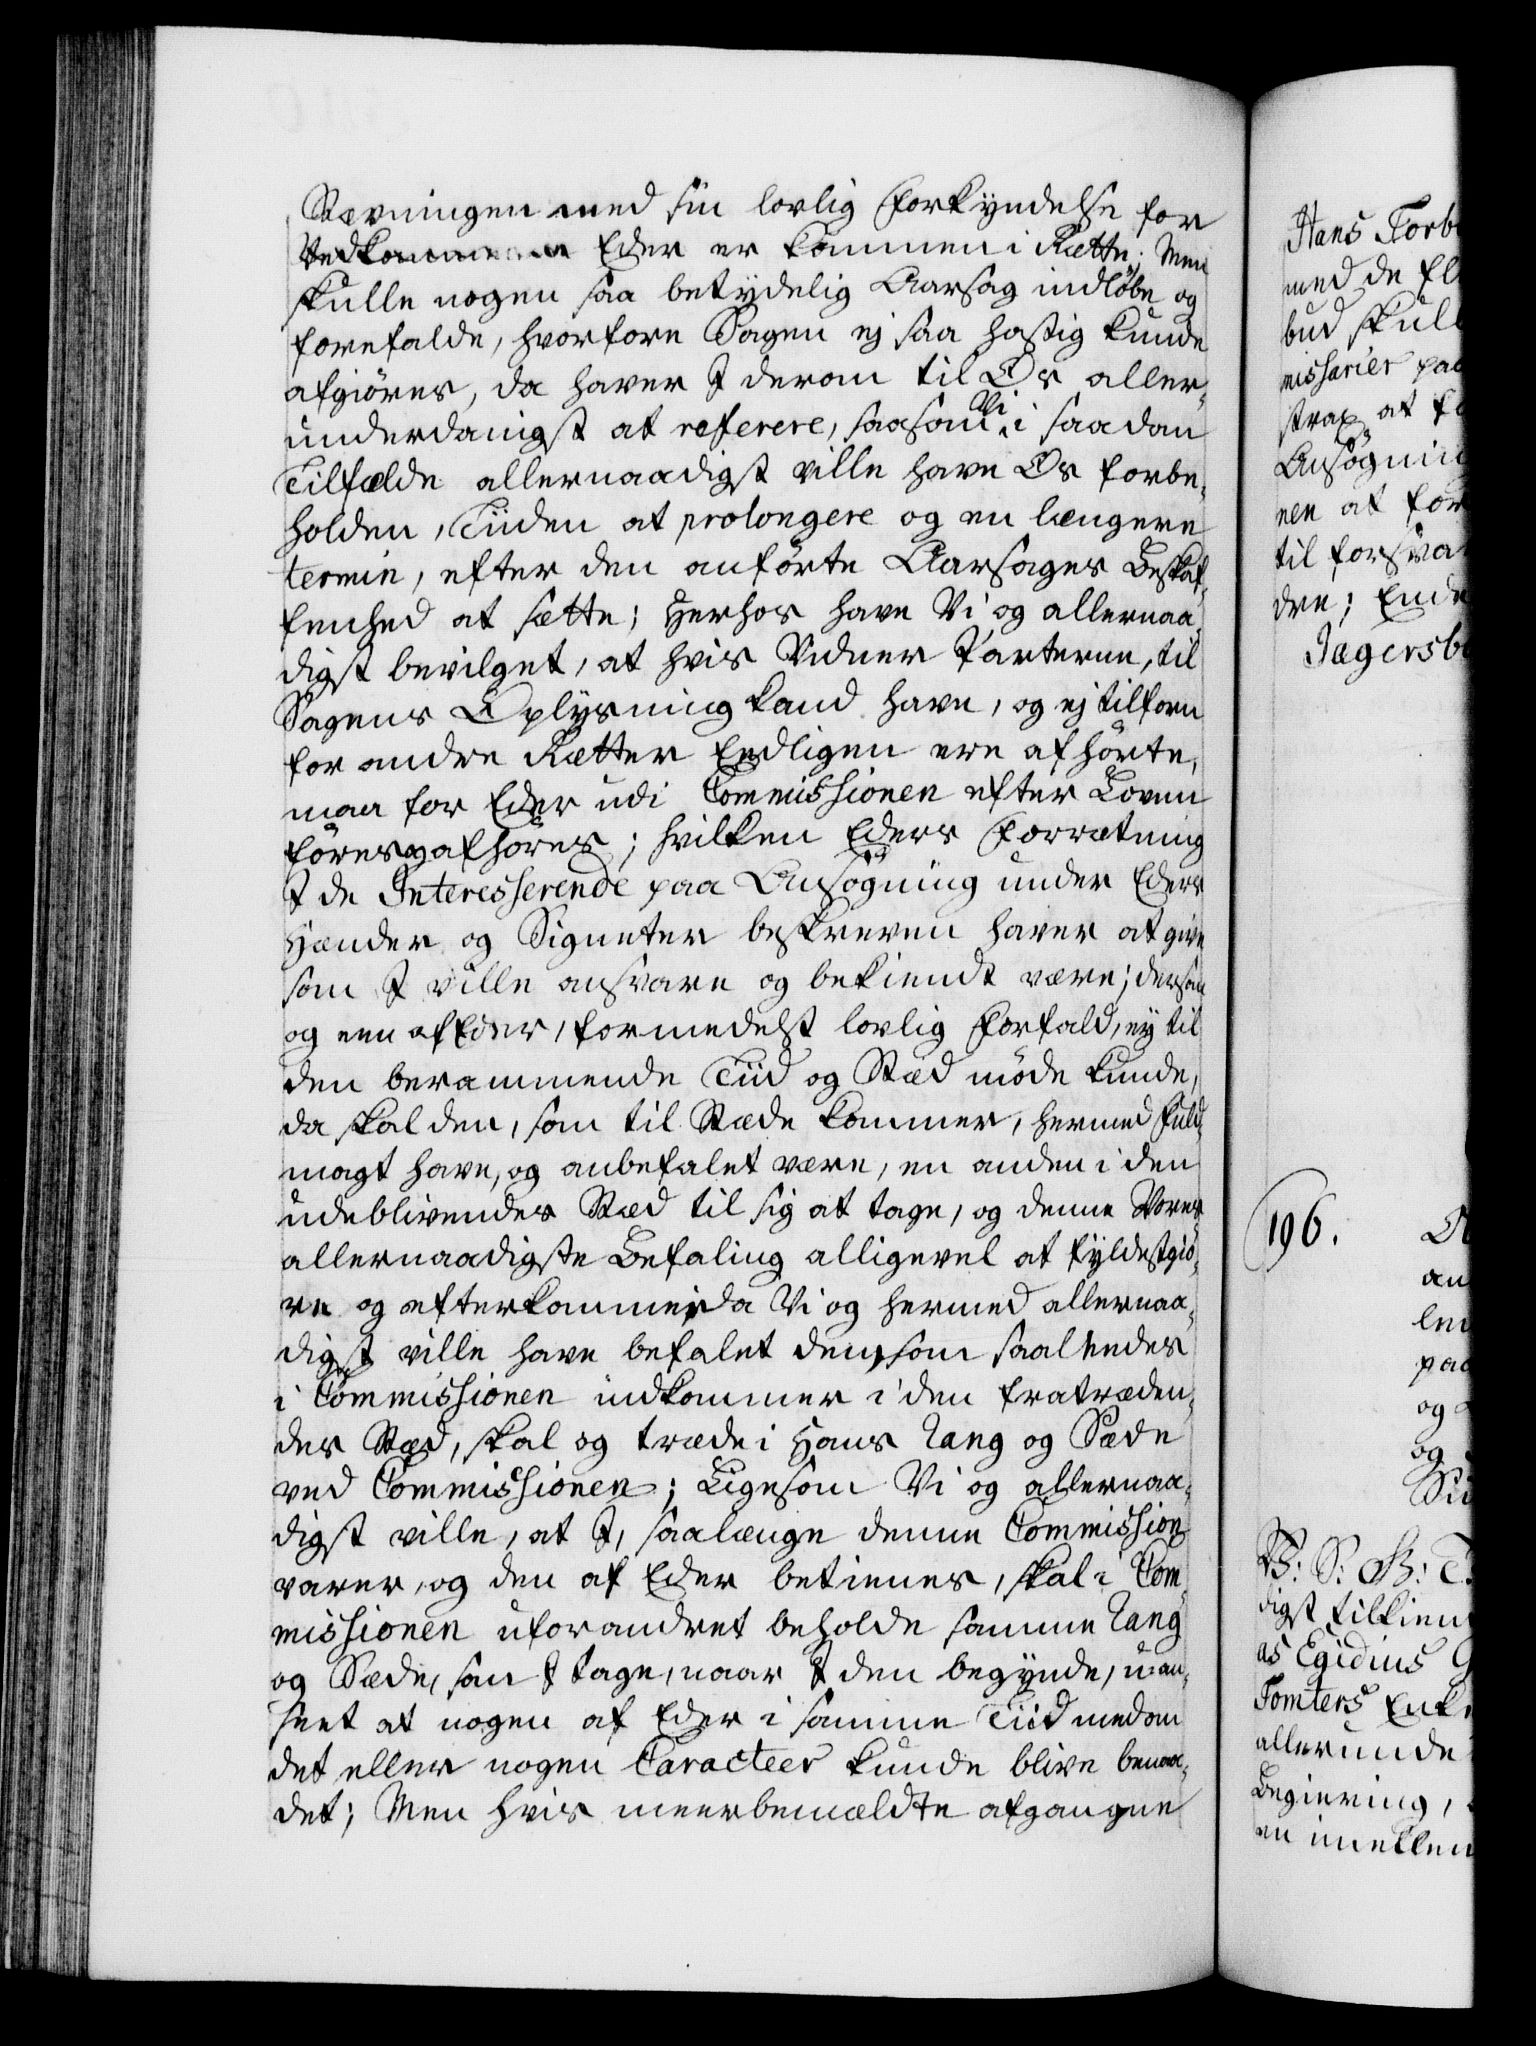 Stevningen med sin lovlig Forkyndelse for
Vedkommende Eder er kommen i Rætte; Men
skulle nogen saa betydelig Aarsag indløbe og
forefalde, hvorfore Sagen ej saa hastig kunde
afgiøres, da haver I derom til Os aller-
underdanigst at referere, saasom Vi i saadan
Tilfælde allernaadigst ville have Os forbe-
holden, Tiiden at prolongere og en længere
termin, efter den anførte Aarsages Beskaf-
fenhed at sætte; Herhos have Vi og allernaa-
digst bevilget, at hvis Vidner Parterne, til
Sagens Oplysning kand have, og ej tilforn
for andre Rætter Eedligen ere afhørte,
maa for Eder udi Commissionen efter Loven
føres og afhøres; hvilken Eders Forrætning
I de Interesserende paa Ansøgning under Eders
Hænder og Signeter beskreven haver at give
som I ville ansvare og bekiendt være; dersom
og een af Eder, formedelst lovlig Forfald, ey til
den berammende Tiid og Stæd møde kunde,
da skal den, som til Stæde kommer, hermed fuld-
magt have, og anbefalet være, en anden i den
udeblivendes Stæd til sig at tage, og denne Vores
allernaadigste Befaling alligevel at fyldestgiø-
re og efterkomme; da Vi og hermed allernaa-
digst ville have befalet den, som saaledes
i Commissionen indkommer i den fratræden-
des Stæd, skal og træde i Hans Rang og Sæde
ved Commissionen; Ligesom Vi og allernaa-
digst ville, at I, saalænge denne Commission
varer, og den af Eder betienes, skal i Com-
missionen uforandret beholde samme Rang
og Sæde, som I tage, naar I den begynde, uan-
seet at nogen af Eder i samme Tiid med om-
det eller nogen Caracteer kunde blive benaa-
det; Men hvis meerbemældte afgangne
Hans Torb
med de Ef
bud skull
missarier paa
strax at f
Ansøgnin
nen at for
til forsva
dre; Ende
Jægersb
196.
an
len
paa
og
og
B: S: G: T:
digst tilkien
as Egidius G
Tomters Enk
allerunde
Begiering,
en imellem